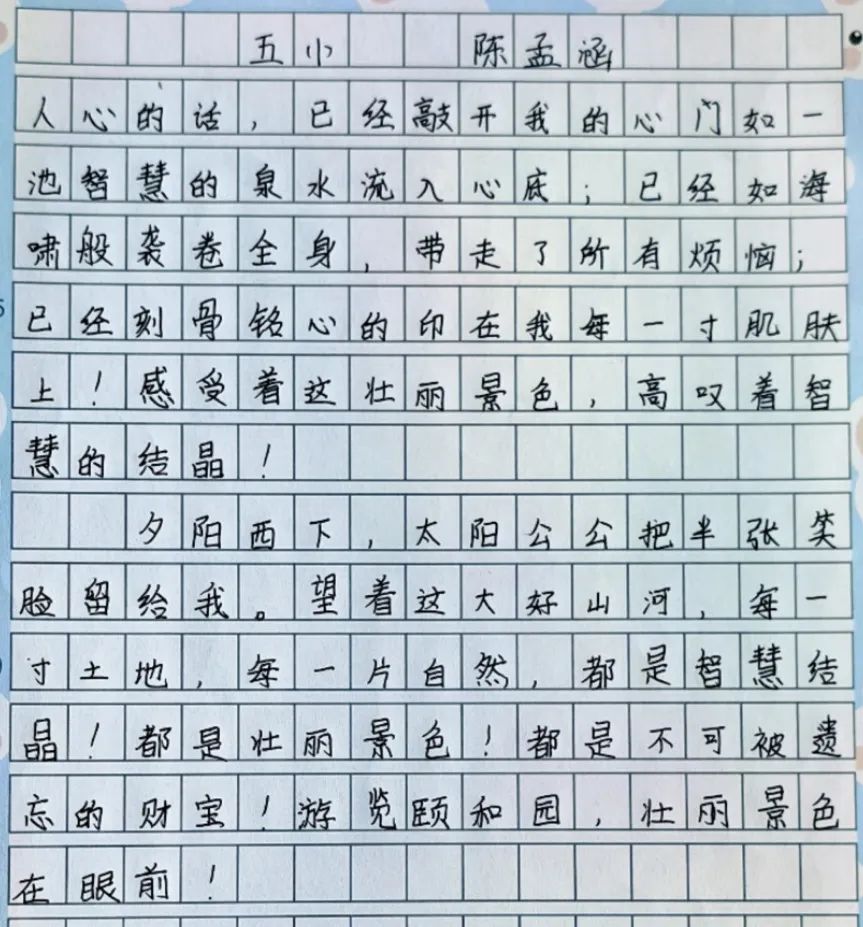 五小 陈孟涵
人心的话，已经敲开我的心门如一
池智慧的泉水流入心底；已经如海
啸般袭卷全身，带走了所有烦恼；
已经刻骨铭心的印在我每一寸肌肤
上！感受着这壮丽景色，高叹着智
慧的结晶！
夕阳西下，太阳公公把半张笑
脸留给我。望着这大好山河，每一
寸土地，每一片自然，都是智慧结
晶！都是壮丽景色！都是不可被遗
忘的财宝！游览颐和园，壮丽景色
在眼前！